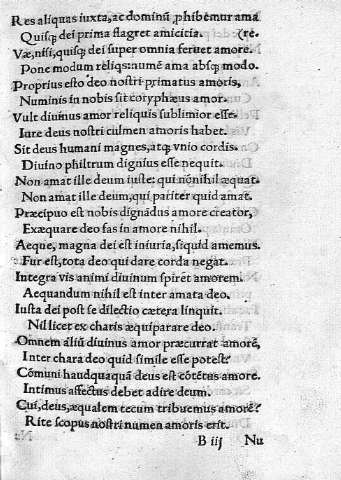 Res aliquas iuxta, ac dominũ ꝓhibemur ama
Quisq; dei prima flagret amicitia. (re.
Væ, nisi, quisq; dei super omnia feruet amore.
Pone modum reliqs: numē ama absq; modo.
Proprius esto deo nostri primatus amoris,
Numinis in nobis sit coryphæus amor.
Vult diuinus amor reliquis sublimior esse.
Iure deus nostri culmen amoris habet.
Sit deus humani magnes, atq; vnio cordis.
Diuino philtrum dignius esse nequit.
Non amat ille deum iuste: qui nōnihil æquat.
Non amat ille deum, qui pariter quid amat.
Præcipuo est nobis dignādus amore creator,
Exæquare deo fas in amore nihil.
Aeque, magna dei est iniuria, siquid amemus.
Fur est, tota deo qui dare corda negat.
Integra vis animi diuinum spirēt amorem.
Aequandum nihil est inter amata deo.
Iusta dei post se dilectio cætera linquit.
Nil licet ex charis æquiparare deo.
Omnem aliũ diuinus amor præcurrat amorē,
Inter chara deo quid simile esse potest?
Cōmuni haudquaquā deus est cōtētus amore.
Intimus affectus debet adire deum.
Cui, deus, æqualem tecum tribuemus amorē?
Rite scopus nostri numen amoris erit.
B iij Nu